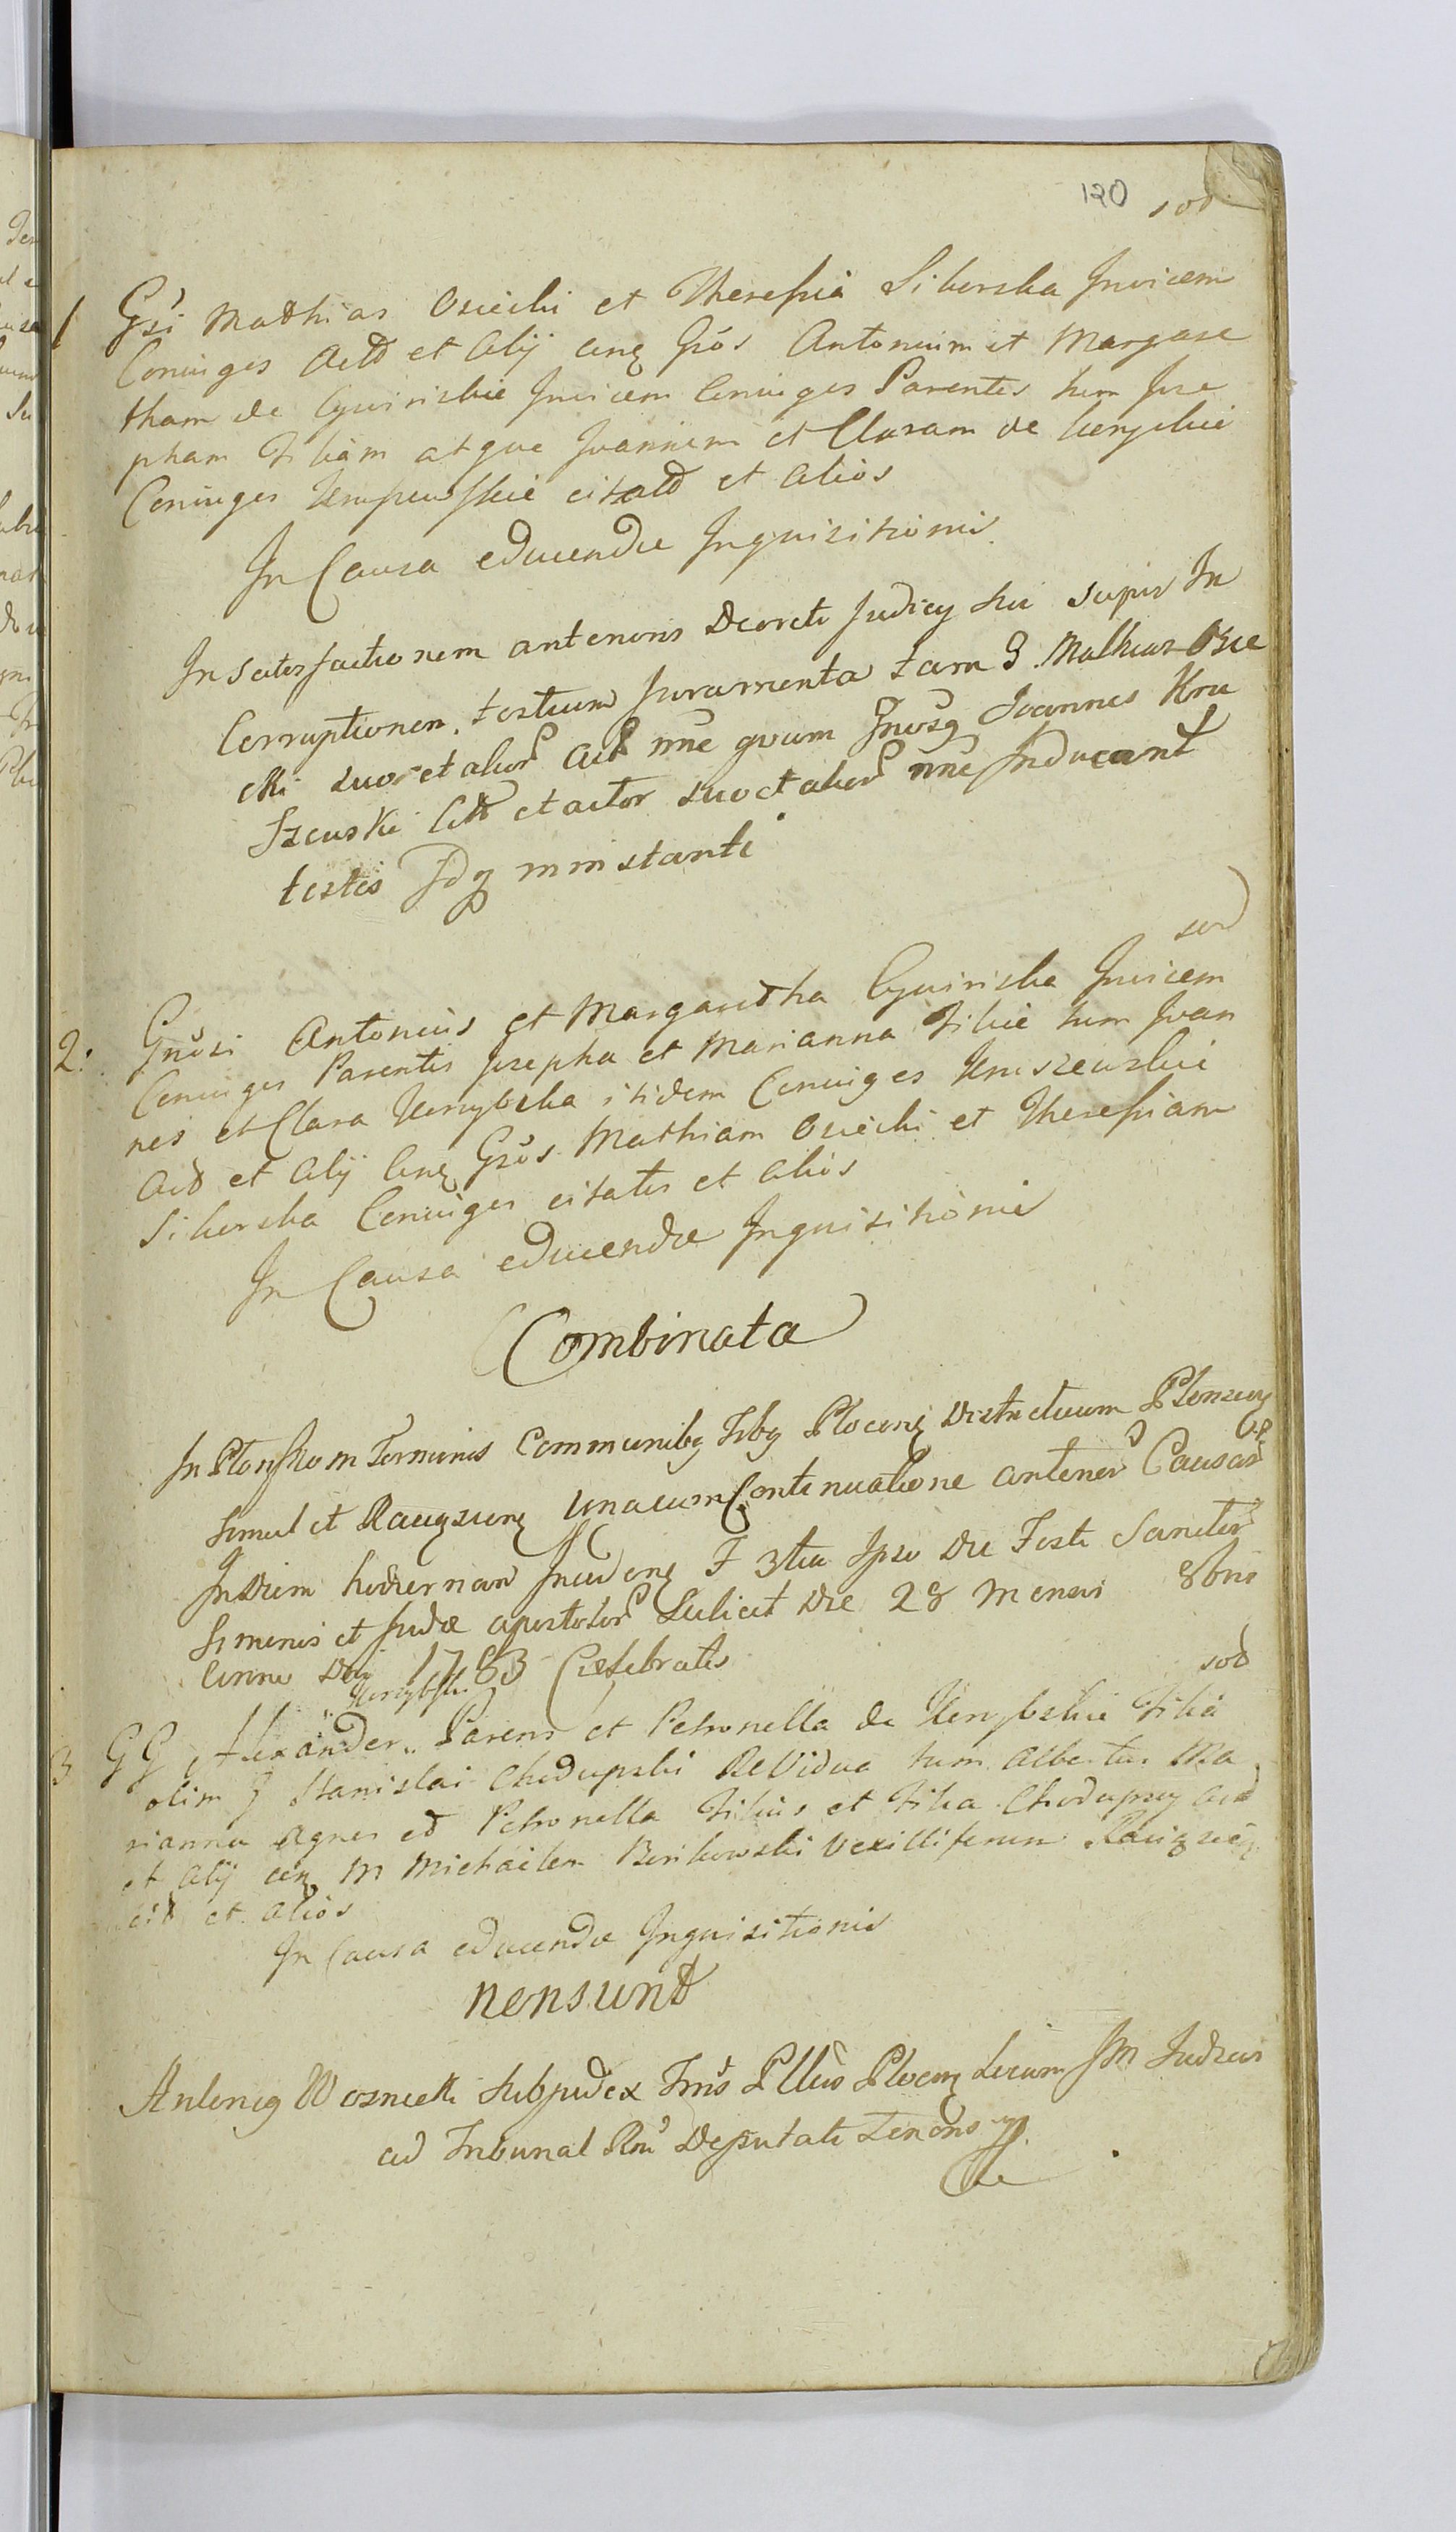 120 sod
1 Gsi Mathias Osiecki et Theressia Siberska Invicem
Coniuges Actt et Alij cunq Gsos Antonium et Margare
tham de Cywinskie Invicem Coniuges Parentes tum Jose
pham Filiam atque Joannem et Claram de
Coniuges citatt et Alios
In Causa educendae Inquisitionis
In Satisfactionem anterioris Decreti Judicij sui super In
Corruptionem testium Juramenta tam G. Mathias Osie
cki suo et alior Act nne quam Gnosq Joannes Kru
szewski Citt et actor suo et alior nne Inducant
testes Idq in instanti
sod
2. Gnosi Antonius et Margaretha Cywinska Invicem
Coniuges Parentes Josepha et Marianna Filiae tum Joan
nes et Clara itidem Coniuges Kruszewskie
Act et Alij Cunq Gsos Mathiam Osiecki et Theressiam
Siberska Coniuges citatos et Alios
In Causa educendae Inquisitionis
Combinata
In Plonsko in Terminis Communibq Tibq Plocenq Districtuum Plonscenq
simul et Raciązcenq unacum Continuatione anterior Causar
In diem hodiernam Incidenq F 3tia Ipso Die Festi Sanctor
Simonis et Judae apostolor Scilicet Die 28 Mensis 8bris
Anno Dni 1783 Celebratis
sod
3 GG Alexander Parens et Petronella de Filia
olim G Stanislai Chodupski ReVidua tum Albertus Ma
rianna Agnes et Petronella Filius et Filia Act
et Alij cunq M Michaelem Vexilliferum Raciązcenq
citt et alios
In Causa educendae Inquisitionis
non sunt
Antonig Woznicki Subjudex Trris Plocenq Locum JM Judicis
ad Tribunal Rni Deputati Tenens